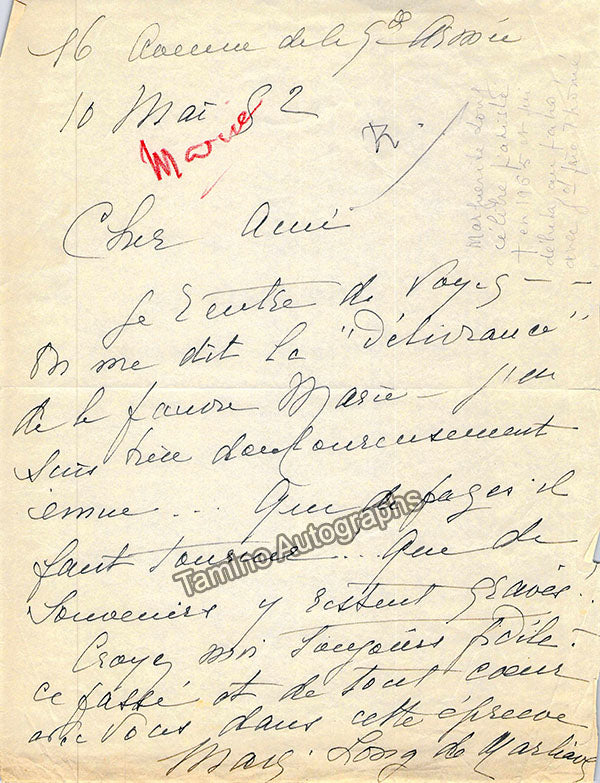 16 Avenue de la Gde Armée
10 Mai 62
Marie
R.
Cher Ami
Je rentre de voyage –
On me dit la "délivrance"
de la pauvre Marie – J'en
suis très douloureusement
émue... Que de pages il
faut tourner... Que de
souvenirs y restent gravés..
Croyez moi toujours fidèle à
ce passé et de tout cœur
avec vous dans cette épreuve
Marg. Long de Marliave
Marguerite Long
célèbre pianiste
† en 1965 et qui
débuta au piano
avec
Tamino Autographs